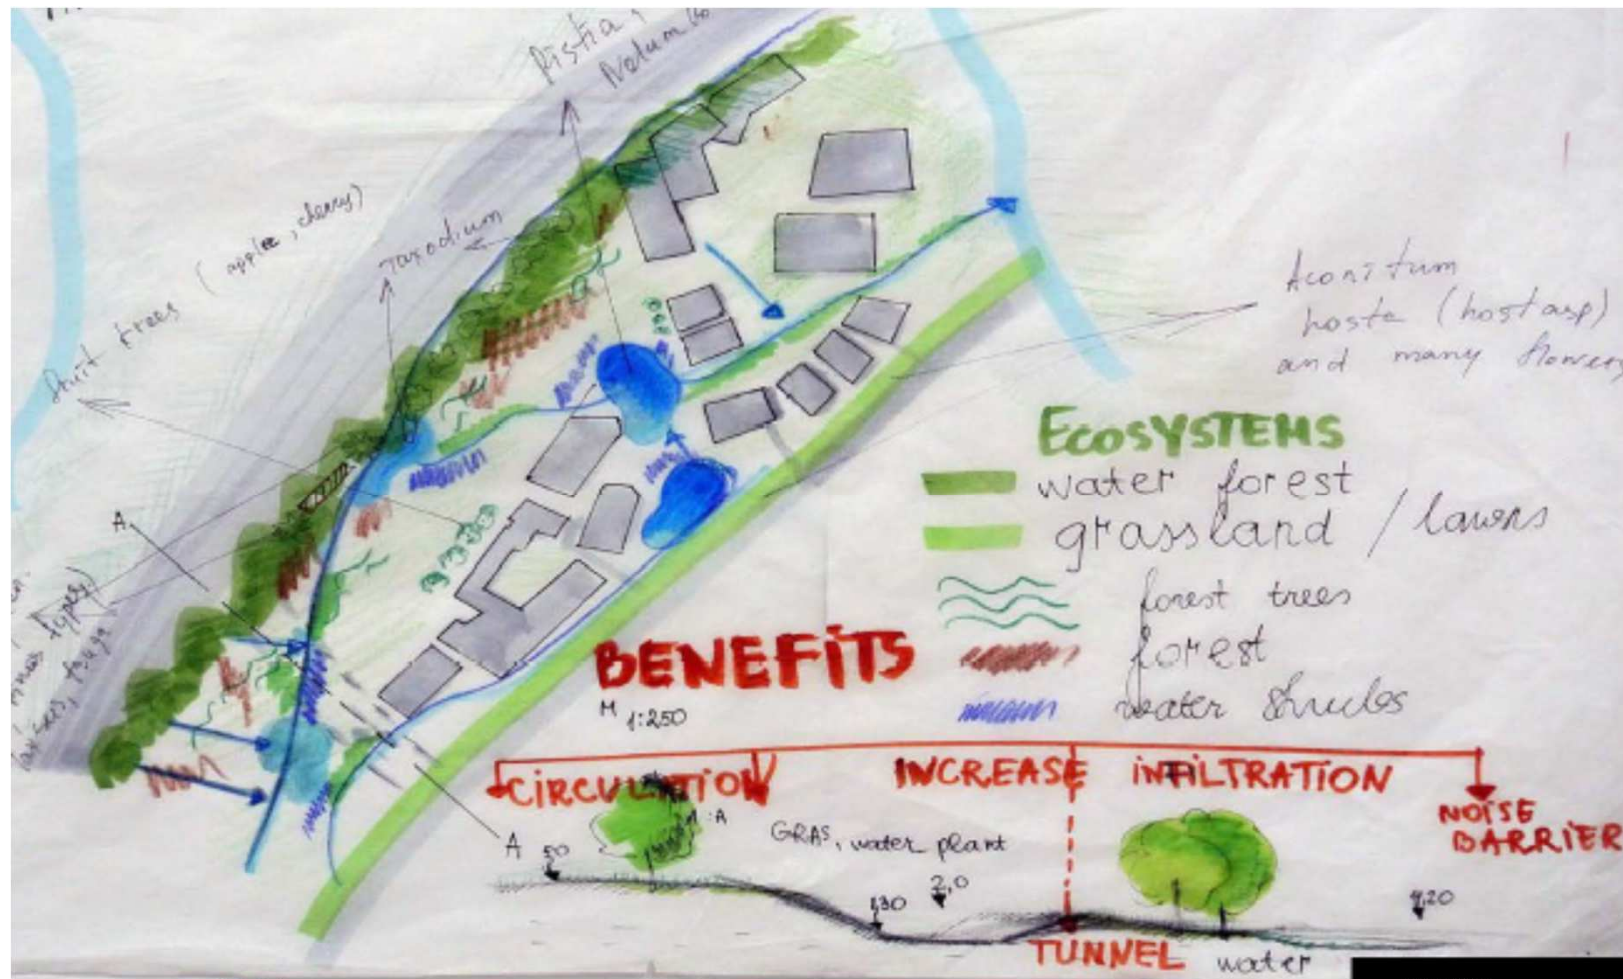 Pistia
fruit trees (apple, cherry)
Taxodium
Aconitum
hosta (hostasp)
and many flowers
ECOSYSTEMS
water forest
grassland / lawns
forest trees
forest
water
BENEFITS
M 1:250
CIRCULATION
INCREASE INFILTRATION
NOISE
BARRIER
A
A
GRAS, water plant
50
130
2,0
TUNNEL
water
types)